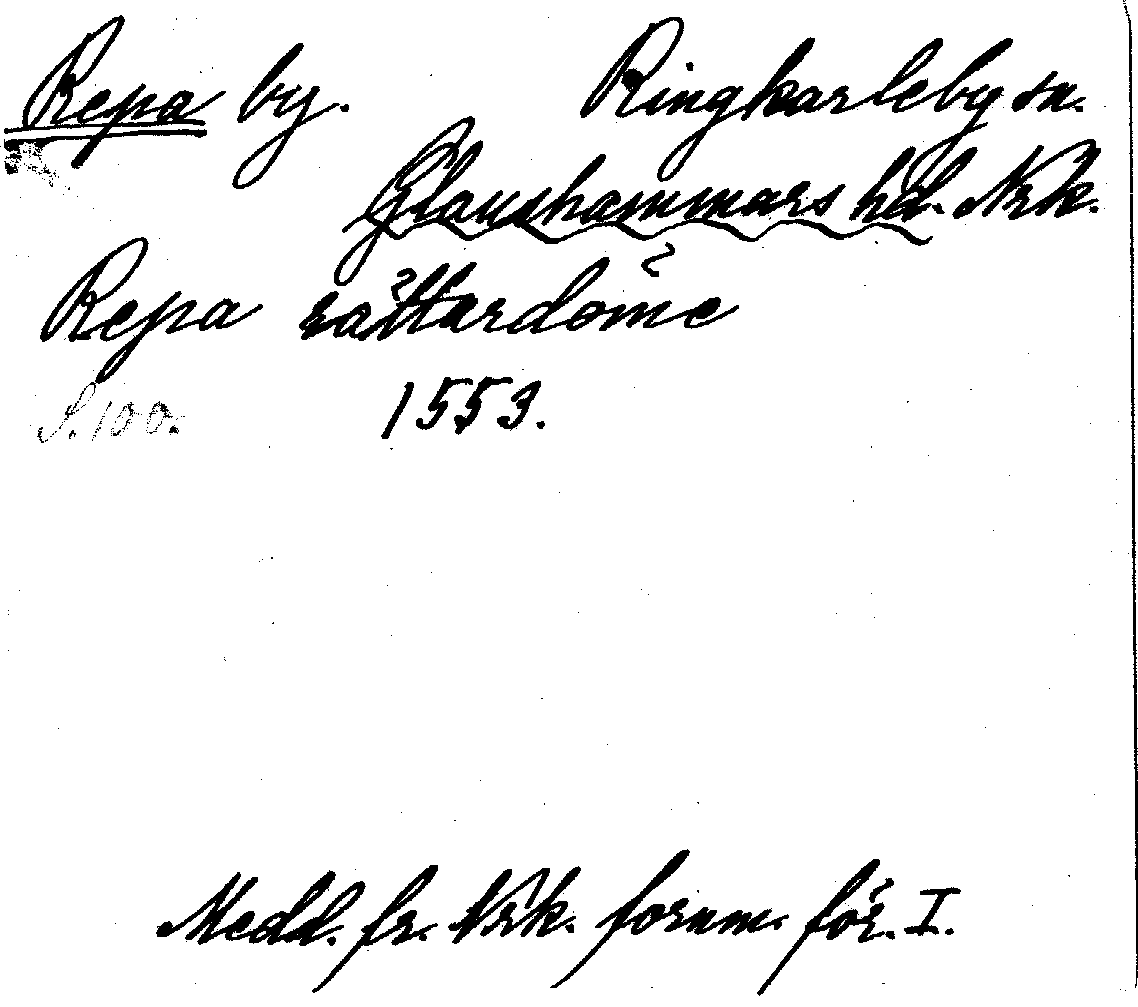 Repa by. Ringkarleby sn.
Glanshammars hd. Nrk.
Repa rättardöme
S. 100. 1553.
Medd. fr. Nrk. fornm. för. I.